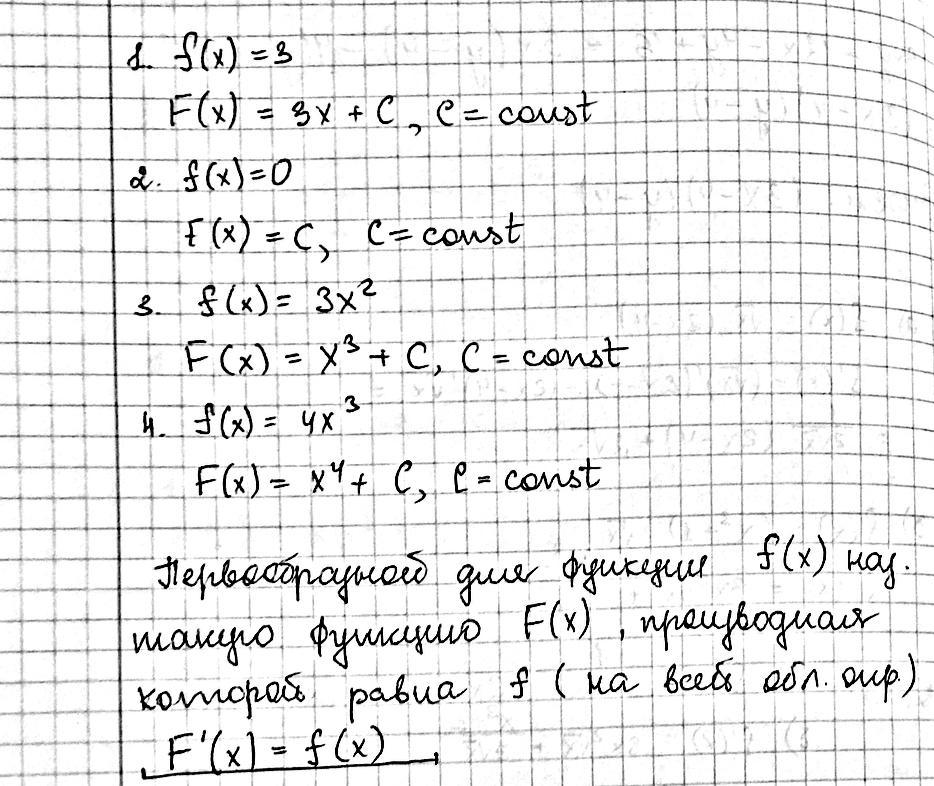 1. f(x) = 3
F(x) = 3x + C, C = const
2. f(x) = 0
F(x) = C, C = const
3. f(x) = 3x²
F(x) = x³ + C, C = const
4. f(x) = 4x³
F(x) = x⁴ + C, C = const
Первообразной для функции f(x) наз.
такую функцию F(x), производная
которой равна f (на всей обл. опр.)
F'(x) = f(x)